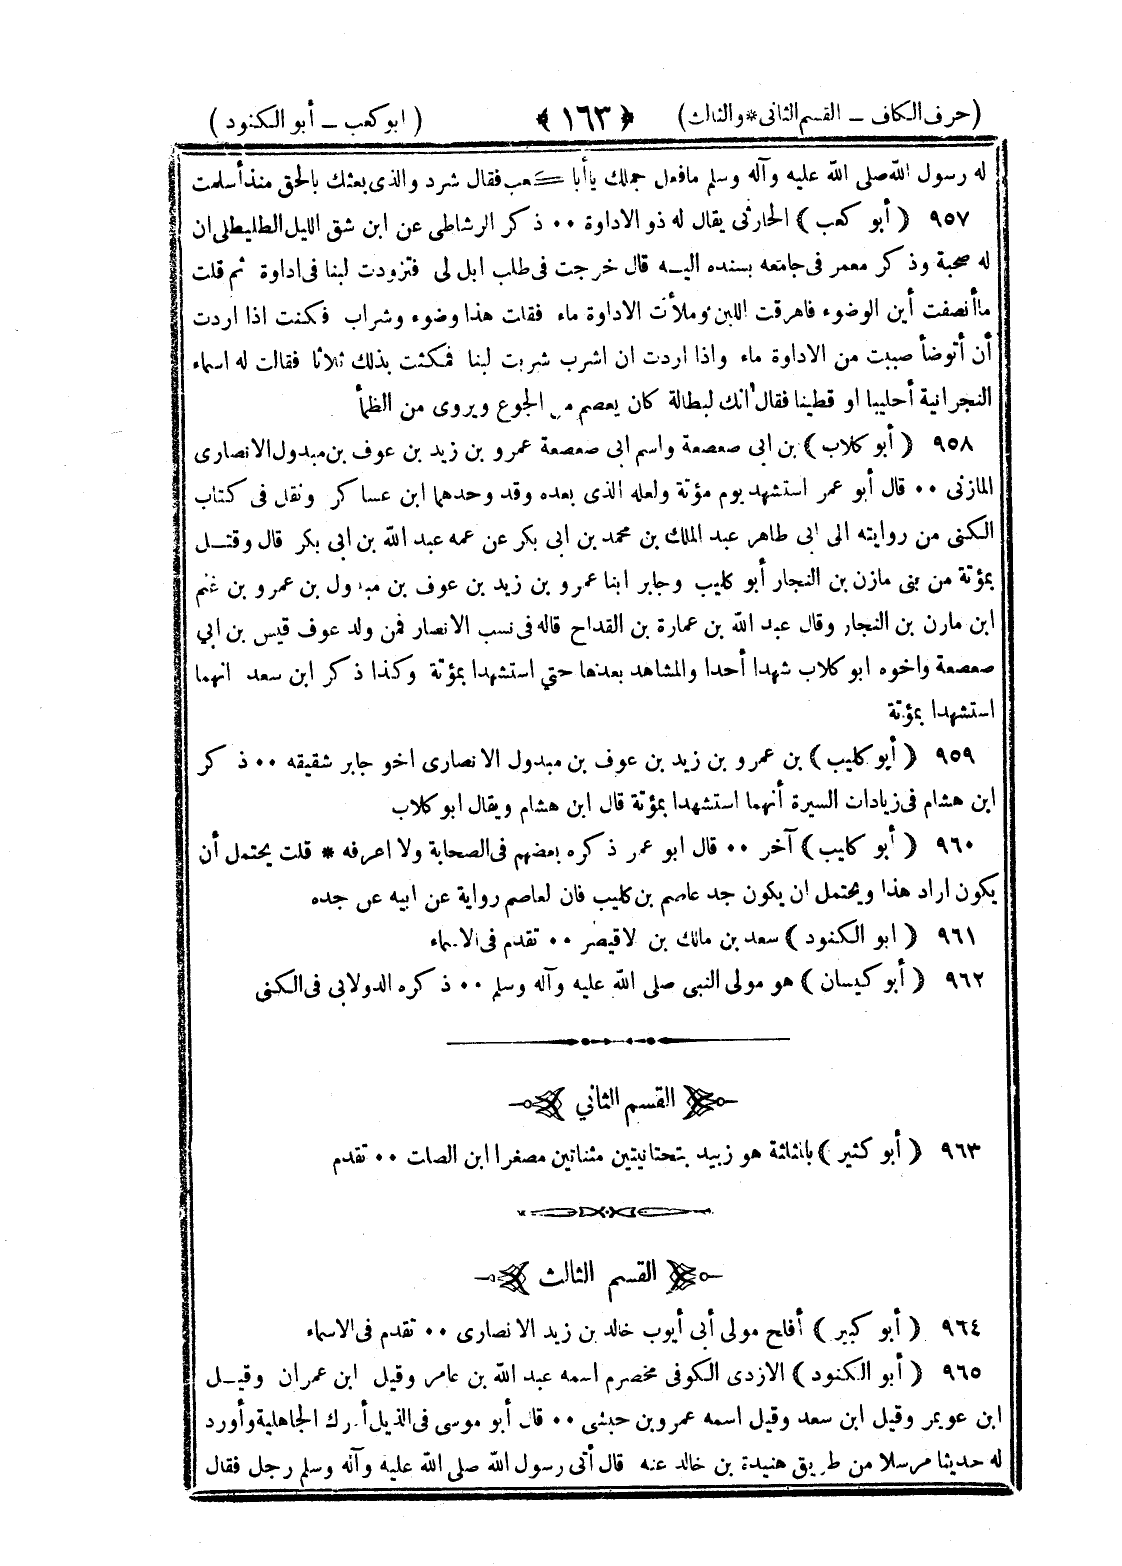 (حرف الكاف – القسم الثانى * والثالث) ﴿ ١٦٣ ﴾ (ابو كعب – أبو الكنود)
له رسول الله صلى الله عليه وآله وسلم مافعل جملك ياأبا كعب فقال شرد والذى بعثك بالحق منذ أسلمت
٩٥٧ ﴿ أبو كعب ﴾ الحارثى يقال له ذو الاداوة ٠٠ ذكر الرشاطى عن ابن شق الليل الطليطلى ان
له صحبة وذكر معمر فى جامعه بسنده اليه قال خرجت فى طلب ابل لى فتزودت لبنا فى اداوة ثم قلت
ماأنصفت أين الوضوء فاهرقت اللبن وملأت الاداوة ماء فقلت هذا وضوء وشراب فكنت اذا اردت
أن أتوضأ صببت من الاداوة ماء واذا اردت ان اشرب شربت لبنا فمكثت بذلك ثلاثا فقالت له اسماء
النجرانية أحليبا او قطينا فقال انك لبطالة كان يعصم من الجوع ويروى من الظمأ
٩٥٨ ﴿ أبو كلاب ﴾ بن ابى صعصعة واسم ابى صعصعة عمرو بن زيد بن عوف بن مبدول الانصارى
المازنى ٠٠ قال أبو عمر استشهد يوم مؤتة ولعله الذى بعده وقد وحدهما ابن عساكر ونقل فى كتاب
الكنى من روايته الى ابى طاهر عبد الملك بن محمد بن ابى بكر عن عمه عبد الله بن ابى بكر قال وقتل
بمؤتة من بنى مازن بن النجار أبو كليب وجابر ابنا عمرو بن زيد بن عوف بن مبدول بن عمرو بن غنم
ابن مازن بن النجار وقال عبد الله بن عمارة بن القداح قاله فى نسب الانصار فمن ولد عوف قيس بن ابي
صعصعة واخوه ابو كلاب شهدا أحدا والمشاهد بعدها حتي استشهدا بمؤتة وكذا ذكر ابن سعد انهما
استشهدا بمؤتة
٩٥٩ ﴿ أبو كليب ﴾ بن عمرو بن زيد بن عوف بن مبدول الانصارى اخو جابر شقيقه ٠٠ ذكر
ابن هشام فى زيادات السيرة أنهما استشهدا بمؤتة قال ابن هشام ويقال ابو كلاب
٩٦٠ ﴿ أبو كليب ﴾ آخر ٠٠ قال ابو عمر ذكره بعضهم فى الصحابة ولا اعرفه * قلت يحتمل أن
يكون اراد هذا ويحتمل ان يكون جد عاصم بن كليب فان لعاصم رواية عن ابيه عن جده
٩٦١ ﴿ ابو الكنود ﴾ سعد بن مالك بن لاقيصر ٠٠ تقدم فى الاسماء
٩٦٢ ﴿ أبو كيسان ﴾ هو مولى النبى صلى الله عليه وآله وسلم ٠٠ ذكره الدولابى فى الكنى
القسم الثاني
٩٦٣ ﴿ أبو كثير ﴾ بالمثلثة هو زبيد بتحتانيتين مثناتين مصغرا ابن الصلت ٠٠ تقدم
القسم الثالث
٩٦٤ ﴿ أبو كبير ﴾ أفلح مولى أبى أيوب خالد بن زيد الانصارى ٠٠ تقدم فى الاسماء
٩٦٥ ﴿ أبو الكنود ﴾ الازدى الكوفى مخضرم اسمه عبد الله بن عامر وقيل ابن عمران وقيل
ابن عويمر وقيل ابن سعد وقيل اسمه عمرو بن حبشى ٠٠ قال أبو موسى فى الذيل أدرك الجاهلية وأورد
له حديثا مرسلا من طريق هنيدة بن خالد عنه قال أتى رسول الله صلى الله عليه وآله وسلم رجل فقال